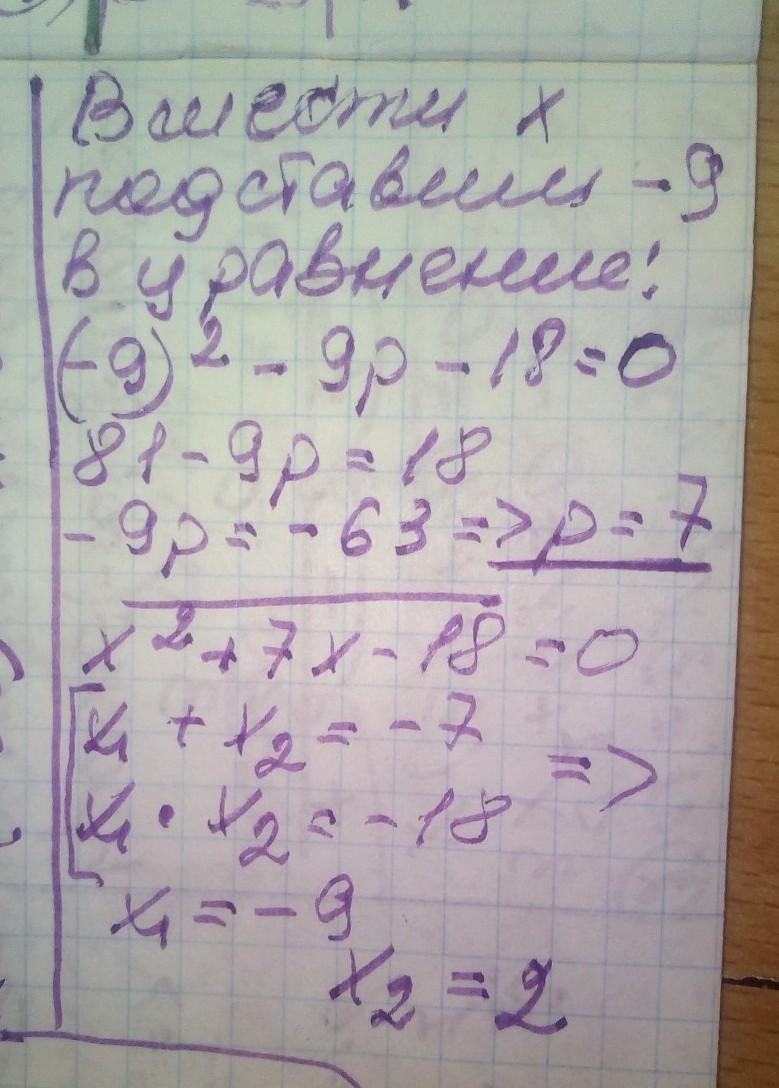 Вмести x
подставим -9
в уравнение:
(-9)² - 9p - 18 = 0
81 - 9p = 18
- 9p = - 63 => p = 7
x² + 7x - 18 = 0
x₁ + x₂ = - 7
=>
x₁ · x₂ = - 18
x₁ = - 9
x₂ = 2